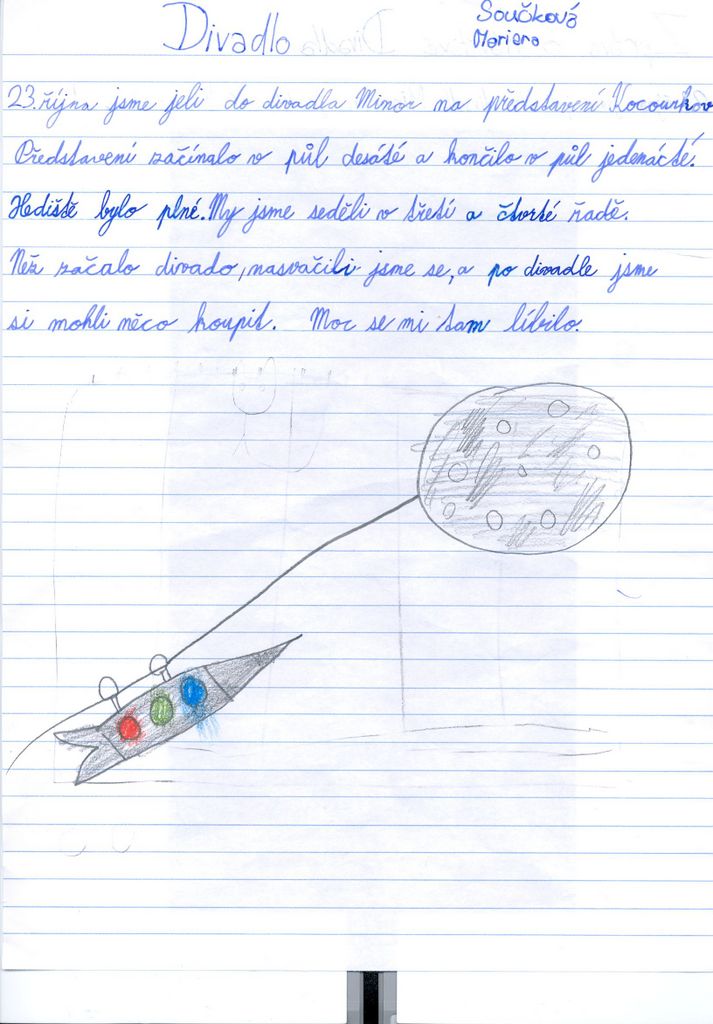 Divadlo
Součková
Mariana
23. října jsme jeli do divadla Minor na představení Kocourkov
Představení začínalo v půl desáté a končilo v půl jedenácté.
Hediště bylo plné. My jsme seděli v třetí a čtvrté řadě.
Než začalo divado, nasvačili jsme se, a po divadle jsme
si mohli něco koupit. Moc se mi tam líbilo.